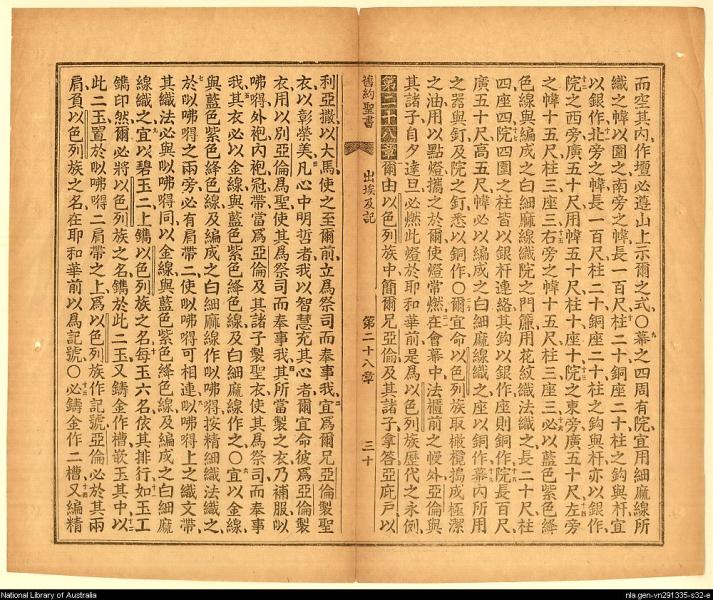 而空其內作壇必遵山上示爾之式〇幕之四周有院宜用細麻線所
織之幃以圍之南旁之幃長一百尺柱二十銅座二十柱之鈎與杆宜
以銀作北旁之幃長一百尺柱二十銅座二十柱之鈎與杆亦以銀作
院之西旁廣五十尺用幃五十尺柱十座十院之東旁廣五十尺左旁
之幃十五尺柱三座三右旁之幃十五尺柱三座三必以藍色紫色絳
色線與編成之白細麻線織院之門簾用花紋織法織之長二十尺柱
四座四院四圍之柱皆以銀杆連絡其鈎以銀作座則銅作院長百尺
廣五十尺高五尺幃必以編成之白細麻線織之座以銅作幕內所用
之器與釘及院之釘悉以銅作〇爾宜命以色列族取橄欖搗成極潔
之油用以點燈攜之於爾使燈常燃在會幕中法櫃前之幔外亞倫與
其諸子自夕達旦必燃此燈於耶和華前是為以色列族歷代之永例
第二十八章 爾由以色列族中簡爾兄亞倫及其諸子拿答亞庇戶以
舊約聖書 出埃及記 第二十八章 三十
利亞撒以大馬使之至爾前立為祭司而奉事我宜為爾兄亞倫製聖
衣以彰榮美凡心中明哲者我以智慧充其心者爾宜命彼為亞倫製
衣用以別亞倫為聖使其為祭司而奉事我其所當製之衣乃補服㕽
咈得外袍內袍冠帶當為亞倫及其諸子製聖衣使其為祭司而奉事
我其衣必以金線與藍色紫色絳色線及白細麻線作之〇宜以金線
與藍色紫色絳色線及編成之白細麻線作㕽咈得按精細織法織之
於㕽咈得之兩旁必有肩帶二使㕽咈得可相連㕽咈得上之織文帶
其織法必與㕽咈得同以金線與藍色紫色絳色線及編成之白細麻
線織之宜以碧玉二上鐫以色列族之名每玉六名依其排行如玉工
鐫印然爾必將以色列族之名鐫於此二玉又鑄金作槽嵌玉其中以
此二玉置於㕽咈得二肩帶之上為以色列族作記號亞倫必於其兩
肩負以色列族之名在耶和華前以為記號〇必鑄金作二槽又編精
National Library of Australia
nla.gen-vn291335-s32-e